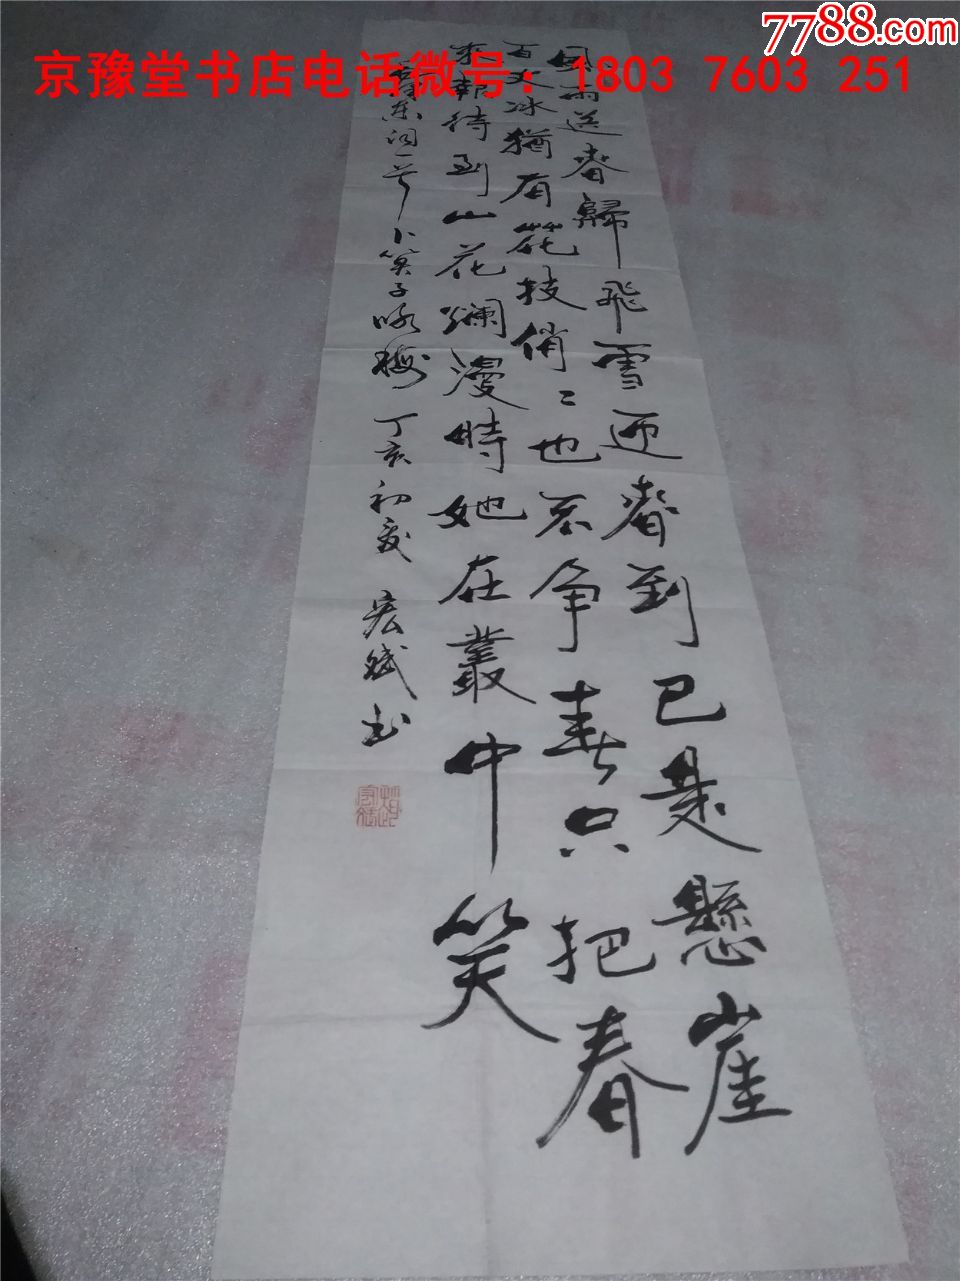 7788.com
京豫堂书店电话微号：1803 7603 251
風雨送春歸飛雪迎春到已是懸崖
百丈冰猶有花枝俏〻也不争春只把春
来報待到山花爛漫時她在叢中笑
東词一首卜算子咏梅 丁亥初夏 宏斌书